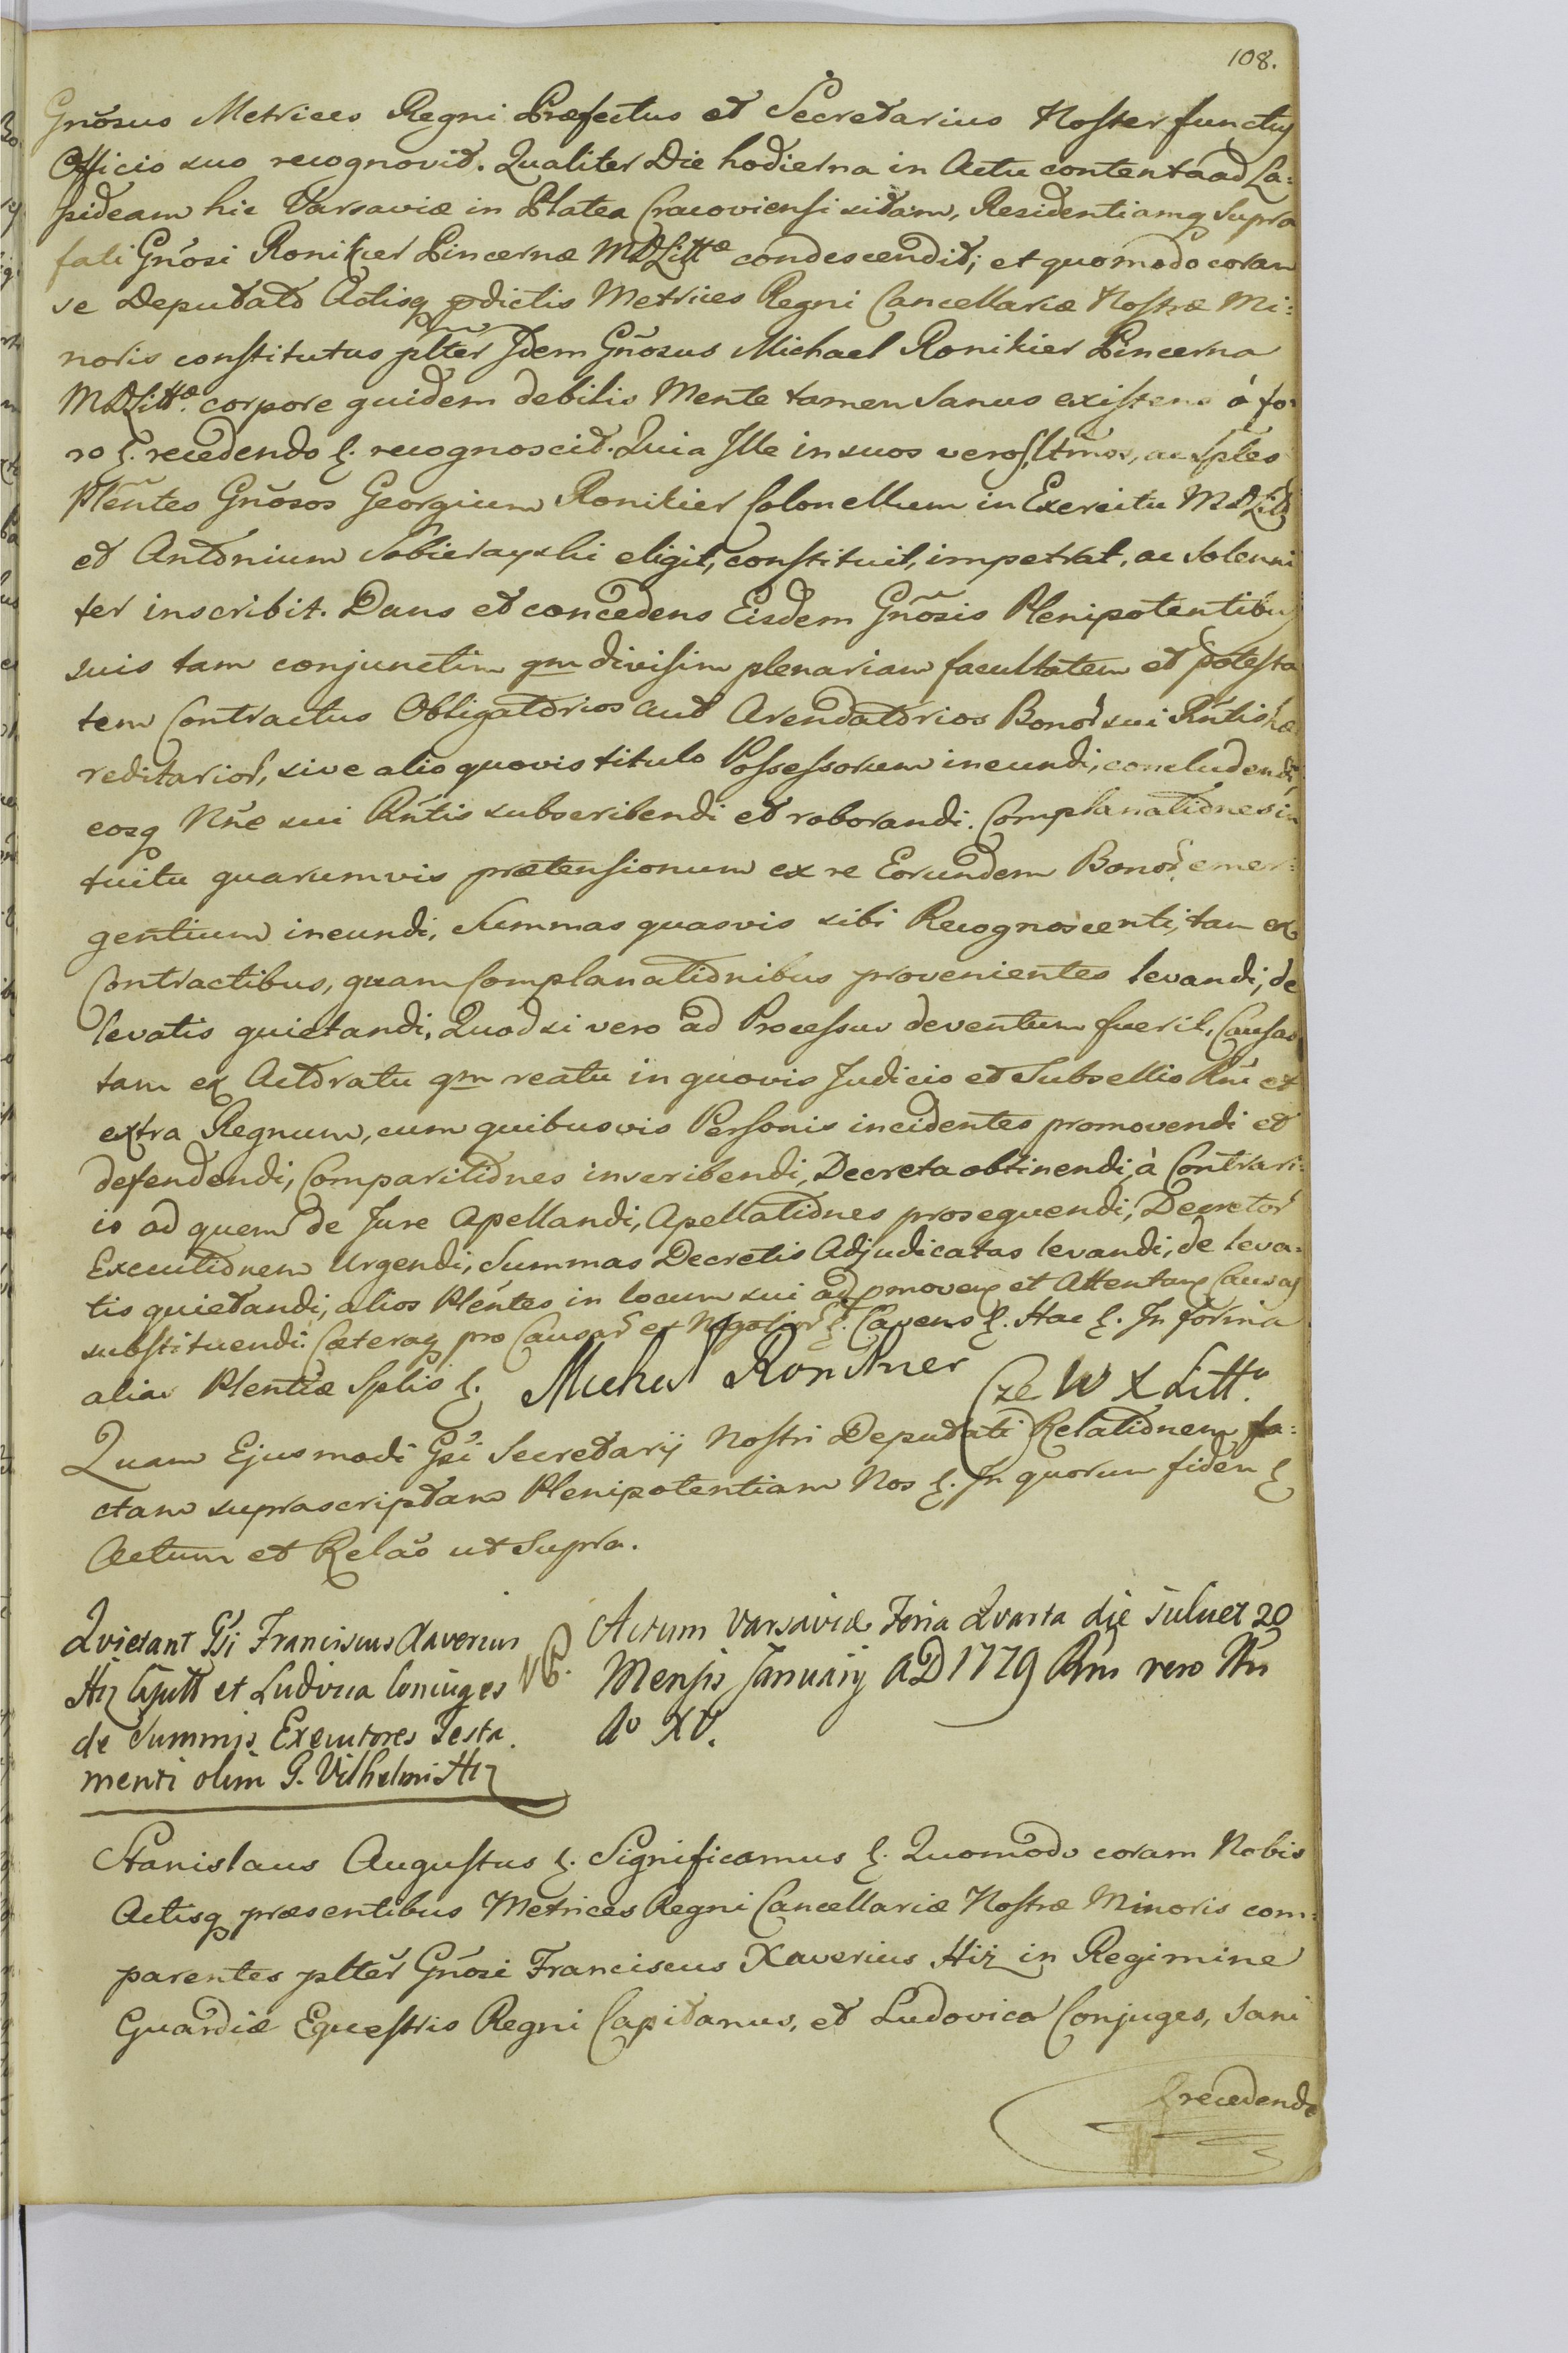 108.
Gnõsus Metrices Regni Præfectus et Secretarius Noster functus
Officio suo recognovit. Qualiter Die hodierna in Actu contenta ad La=
pideam hic Varsaviæ in Platea Cracoviensi sitam, Residentiamq Supra
fati Gnõsi Ronikier Pincernæ MDLittæ condescendit; et quomodo coram
se Deputato Actisq pdictis Metrices Regni Cancellariæ Nostræ Mi=
noris constitutus plter Idem Gnõsus Michael Ronikier Pincerna
MDLittæ. corpore quidem debilis Mente tamen Sanus existens à fo=
ro &. recedendo &. recognoscit. Quia Ille in suos veros, ltmos, ac Sples
Plentes Gnõsos Georgium Ronikier Colonellum in Exercitu MDLitt
et Antonium Sobierayski eligit, constituit, impetrat, ac Solenni
ter inscribit. Dans et concedens Eisdem Gnõsis Plenipotentibus
suis tam conjunctim qm divisim plenariam facultatem et potesta
tem Contractus Obligatorios aut Arendatorios Bonor sui Rntis hæ
reditarior, sive alio quovis titulo Possessorum ineundi, concludendi,
eosq Nne sui Rntis subscribendi et roborandi. Complanationes in
tuitu quarumvis prætensionum ex re Eorundem Bonor emer=
gentium ineundi, Summas quasvis sibi Recognoscenti, tam ex
Contractibus, quam Complanationibus provenientes levandi, de
levatis quietandi, Quod si vero ad Processus deventum fuerit, Causas
tam ex Actoratu qm reatu in quovis Judicio et Subsellio Rni et
extra Regnum, cum quibusvis Personis incidentes promovendi et
defendendi, Comparitiones inscribendi, Decreta obtinendi, à Contrari=
is ad quem de Jure Apellandi, Apellationes prosequendi, Decretor
Executionem Urgendi, Summas Decretis Adjudicatas levandi, de leva=
tis quietandi, alios Plentes in locum sui ad pmovens et Attentans Causas
substituendi. Cæteraq pro Causar et Negotior &. Cavens &. Hac &. In forma
alias Plentiæ Splis &. Michał Ronikier Cze W X Litt.
Quam Ejusmodi Gsi Secretarij Nostri Deputati Relationem fa=
ctam suprascriptam Plenipotentiam Nos &. In quorum fidem &
Actum et Relaõ ut Supra.
Quietant Gsi Franciscus Xaverius
Hiz Capitt et Ludovica Coniuges
de Summis Executores Testa.
menti olim G. Vilhelmi Hiz
NB.
Actum Varsaviæ Feria Quarta die Scilicet 20
Mensis January AD 1779 Rni vero Nri
Ao XV.
Stanislaus Augustus &. Significamus &. Quomodo coram Nobis
Actisq præsentibus Metrices Regni Cancellariæ Nostræ Minoris com=
parentes plter Gnõsi Franciscus Xaverius Hiż in Regimine
Guardiæ Equestris Regni Capitanus, et Ludovica Conjuges, Sani
& recedendo